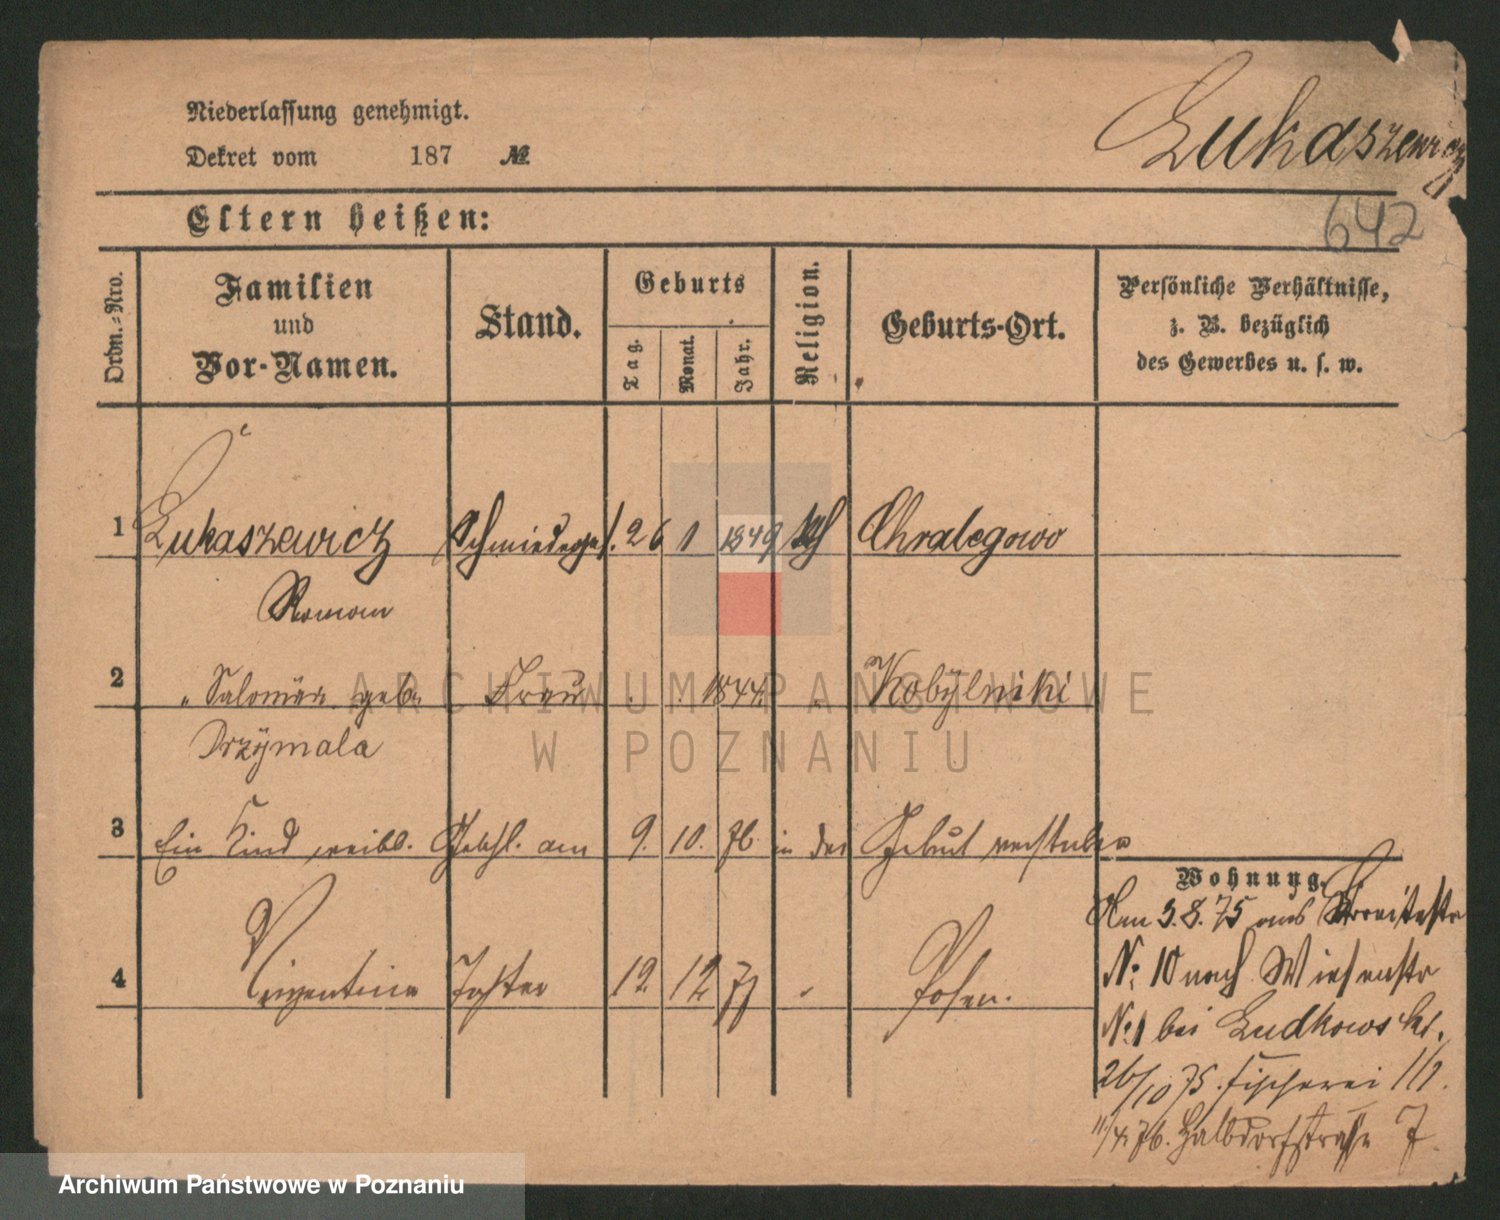 Niederlassung genehmigt.
Dekret vom 187 №
Lukaszewicz
642
Eltern heißen:
Ordn.-Nro.
Familien und Vor-Namen.
Stand.
Geburts
Tag. Monat. Jahr.
Religion.
Geburts-Ort.
Persönliche Verhältnisse, z. B. bezüglich des Gewerbes u. s. w.
1 Lukaszewicz Schmiedeges. 26 1 1849 kth Chralegowo
Roman
2 " Salomea geb. Frau 1844 Kobylniki
Drzÿmala
3 Ein Kind weibl. Geschl. am 9. 10. 76 in der Geburt verstorben
4 Tochter 12 12 77 Posen.
Wohnung.
Am 3.8.75 aus Breitestr
№ 10 nach Wiesenstr
№ 1 bei Ludkowski.
26/10 75. Fischerei
11/4. 76. Halbdorfstraße 7
ARCHIWUM PAŃSTWOWE
W POZNANIU
Archiwum Państwowe w Poznaniu